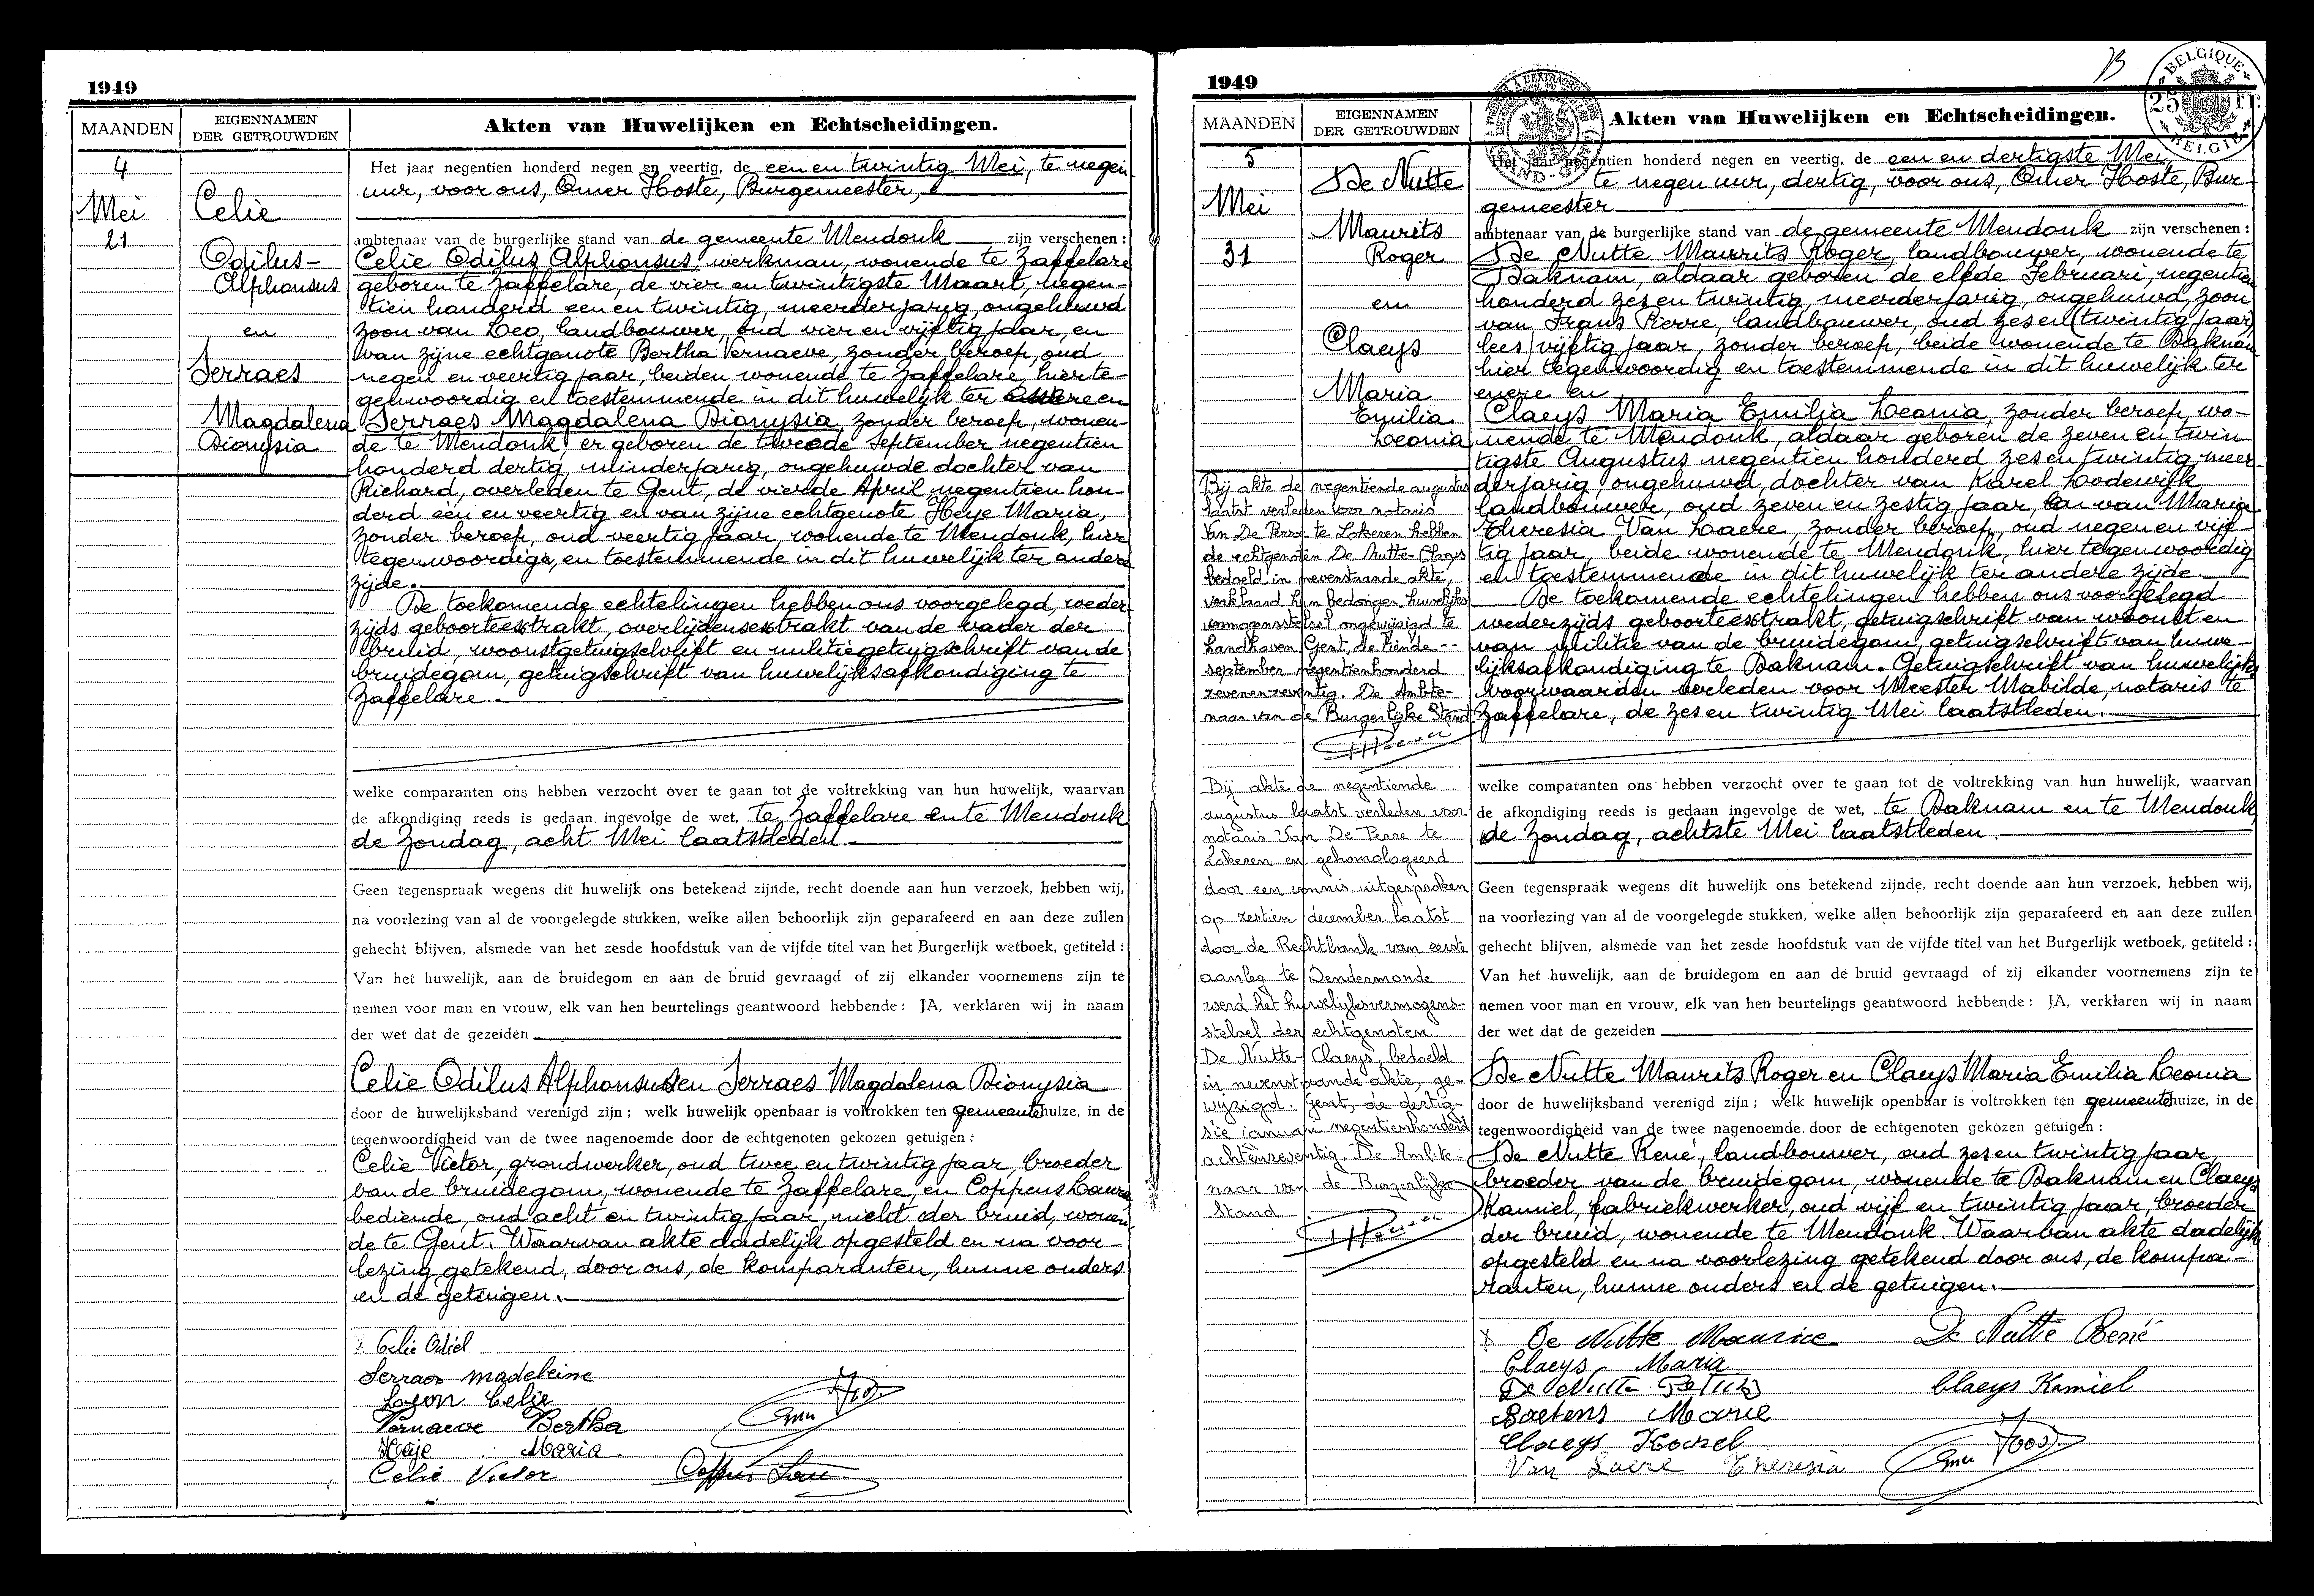 1949
MAANDEN
EIGENNAMEN
DER GETROUWDEN
Akten van Huwelijken en Echtscheidingen.
4
Mei
21
Celie
Odilus-
Alphonsus
en
Serraes
Magdalena
Dionysia
Het jaar negentien honderd negen en veertig, de een en twintig Mei, te negen
uur, voor ons, Omer Hoste, Burgemeester,
ambtenaar van de burgerlijke stand van de gemeente Mendonk zijn verschenen :
Celie Odilus Alphonsus, werkman, wonende te Zaffelare
geboren te Zaffelare, de vier en twintigste Maart, negen-
tien honderd een en twintig, meerderjarig, ongehuwd
zoon van Leo, landbouwer, oud vier en vijftig jaar, en
van zijne echtgenote Bertha Vernaeve, zonder beroep, oud
negen en veertig jaar, beiden wonende te Zaffelare, hierte-
genwoordig en toestemmende in dit huwelijk ter enere en
Serraes Magdalena Dionysia, zonder beroep, wonen-
de te Mendonk, er geboren de tweede September negentien
honderd dertig, minderjarig, ongehuwde dochter van
Richard, overleden te Gent, de vierde April negentien hon-
derd een en veertig en van zijne echtgenote Heye Maria,
zonder beroep, oud veertig jaar, wonende te Mendonk, hier
tegenwoordige, en toestemmende in dit huwelijk ter andere
zijde.
De toekomende echtelingen hebben ons voorgelegd, weder
zijds geboorteextrakt, overlijdensextrakt van de vader der
bruid, woonstgetuigschrift en militiegetuigschrift van de
bruidegom, getuigschrift van huwelijksafkondiging te
Zaffelare.
welke comparanten ons hebben verzocht over te gaan tot de voltrekking van hun huwelijk, waarvan
de afkondiging reeds is gedaan ingevolge de wet, te Zaffelare en te Mendonk
de Zondag, acht Mei laatstleden.
Geen tegenspraak wegens dit huwelijk ons betekend zijnde, recht doende aan hun verzoek, hebben wij,
na voorlezing van al de voorgelegde stukken, welke allen behoorlijk zijn geparafeerd en aan deze zullen
gehecht blijven, alsmede van het zesde hoofdstuk van de vijfde titel van het Burgerlijk wetboek, getiteld :
Van het huwelijk, aan de bruidegom en aan de bruid gevraagd of zij elkander voornemens zijn te
nemen voor man en vrouw, elk van hen beurtelings geantwoord hebbende : JA, verklaren wij in naam
der wet dat de gezeiden
Celie Odilus Alphonsus en Serraes Magdalena Dionysia
door de huwelijksband verenigd zijn ; welk huwelijk openbaar is voltrokken ten gemeentehuize, in de
tegenwoordigheid van de twee nagenoemde door de echtgenoten gekozen getuigen :
Celie Victor, grondwerker, oud twee en twintig jaar, broeder
van de bruidegom, wonende te Zaffelare, en Coppens
bediende, oud acht en twintig jaar, nicht der bruid, wonen-
de te Gent. Waarvan akte dadelijk opgesteld en na voor-
lezing getekend, door ons, de komparanten, hunne ouders
en de getuigen.
Celie Odiel
Serraes madeleine
Leon Celie
Vernaeve Bertha
Heije Maria
Celie Victor
1949
B
BELGIQUE
25 Fr.
BELGIE
MAANDEN
EIGENNAMEN
DER GETROUWDEN
Akten van Huwelijken en Echtscheidingen.
5
Mei
31
De Nutte
Maurits
Roger
en
Claeys
Maria
Emilia
Leonia
Het jaar negentien honderd negen en veertig, de een en dertigste Mei,
te negen uur, dertig, voor ons, Omer Hoste, Bur-
gemeester
ambtenaar van de burgerlijke stand van de gemeente Mendonk zijn verschenen :
De Nutte Maurits Roger, landbouwer, wonende te
Daknam, aldaar geboren de elfde Februari, negentien
honderd zes en twintig, meerderjarig, ongehuwd, zoon
van Frans Pierre, landbouwer, oud zes en (twintig jaar)
lees vijftig jaar, zonder beroep, beide wonende te Daknam
hier tegenwoordig en toestemmende in dit huwelijk ter
enere en
Claeys Maria Emilia Leonia, zonder beroep, wo-
nende te Mendonk, aldaar geboren de zeven en twin
tigste Augustus negentien honderd zes en twintig, meer-
derjarig, ongehuwd, dochter van Karel Lodewijk
landbouwer, oud zeven en zestig jaar, en van Maria
Theresia Van Laere, zonder beroep, oud negen en vijf-
tig jaar, beide wonende te Mendonk, hier tegenwoordig
en toestemmende in dit huwelijk ter andere zijde.
De toekomende echtelingen hebben ons voorgelegd
wederzijds geboorteextrakt, getuigschrift van woonst en
van militie van de bruidegom, getuigschrift van huwe-
lijksafkondiging te Daknam. Getuigschrift van huwelijks
voorwaarden verleden voor Meester Mabilde, notaris te
Zaffelare, de zes en twintig Mei laatstleden.
Bij akte de negentiende augustus
laatst verleden voor notaris
Van De Perre te Lokeren hebben
de echtgenoten De Nutte-Claeys
bedoeld in nevenstaande akte,
verklaard hun bedongen huwelijks
vermogensstelsel ongewijzigd te
handhaven. Gent, de tiende --
september negentienhonderd
zevenenzeventig. De Ambte-
naar van de Burgerlijke Stand
Bij akte de negentiende
augustus laatst verleden voor
notaris Van De Perre te
Lokeren en gehomologeerd
door een vonnis uitgesproken
op zestien december laatst
door de Rechtbank van eerste
aanleg te Dendermonde
werd het huwelijksvermogens-
stelsel der echtgenoten
De Nutte-Claeys, bedoeld
in nevenstaande akte, ge-
wijzigd. Gent, de dertig-
ste januari negentienhonderd
achtenzeventig. De Ambte-
naar van de Burgerlijke
Stand
welke comparanten ons hebben verzocht over te gaan tot de voltrekking van hun huwelijk, waarvan
de afkondiging reeds is gedaan ingevolge de wet, te Daknam en te Mendonk
de Zondag, achtste Mei laatstleden.
Geen tegenspraak wegens dit huwelijk ons betekend zijnde, recht doende aan hun verzoek, hebben wij,
na voorlezing van al de voorgelegde stukken, welke allen behoorlijk zijn geparafeerd en aan deze zullen
gehecht blijven, alsmede van het zesde hoofdstuk van de vijfde titel van het Burgerlijk wetboek, getiteld :
Van het huwelijk, aan de bruidegom en aan de bruid gevraagd of zij elkander voornemens zijn te
nemen voor man en vrouw, elk van hen beurtelings geantwoord hebbende : JA, verklaren wij in naam
der wet dat de gezeiden
De Nutte Maurits Roger en Claeys Maria Emilia Leonia
door de huwelijksband verenigd zijn ; welk huwelijk openbaar is voltrokken ten gemeentehuize, in de
tegenwoordigheid van de twee nagenoemde door de echtgenoten gekozen getuigen :
De Nutte René, landbouwer, oud zes en twintig jaar,
broeder van de bruidegom, wonende te Daknam en Claeys
Kamiel, fabriekwerker, oud vijf en twintig jaar, broeder
der bruid, wonende te Mendonk. Waarvan akte dadelijk
opgesteld en na voorlezing getekend door ons, de kompa-
ranten, hunne ouders en de getuigen.
De Nutte Maurice De Nutte René
Claeys Maria
De Nutte
Claeys Kamiel
Baetens Marie
Claeys Karel
Van Laere Theresia